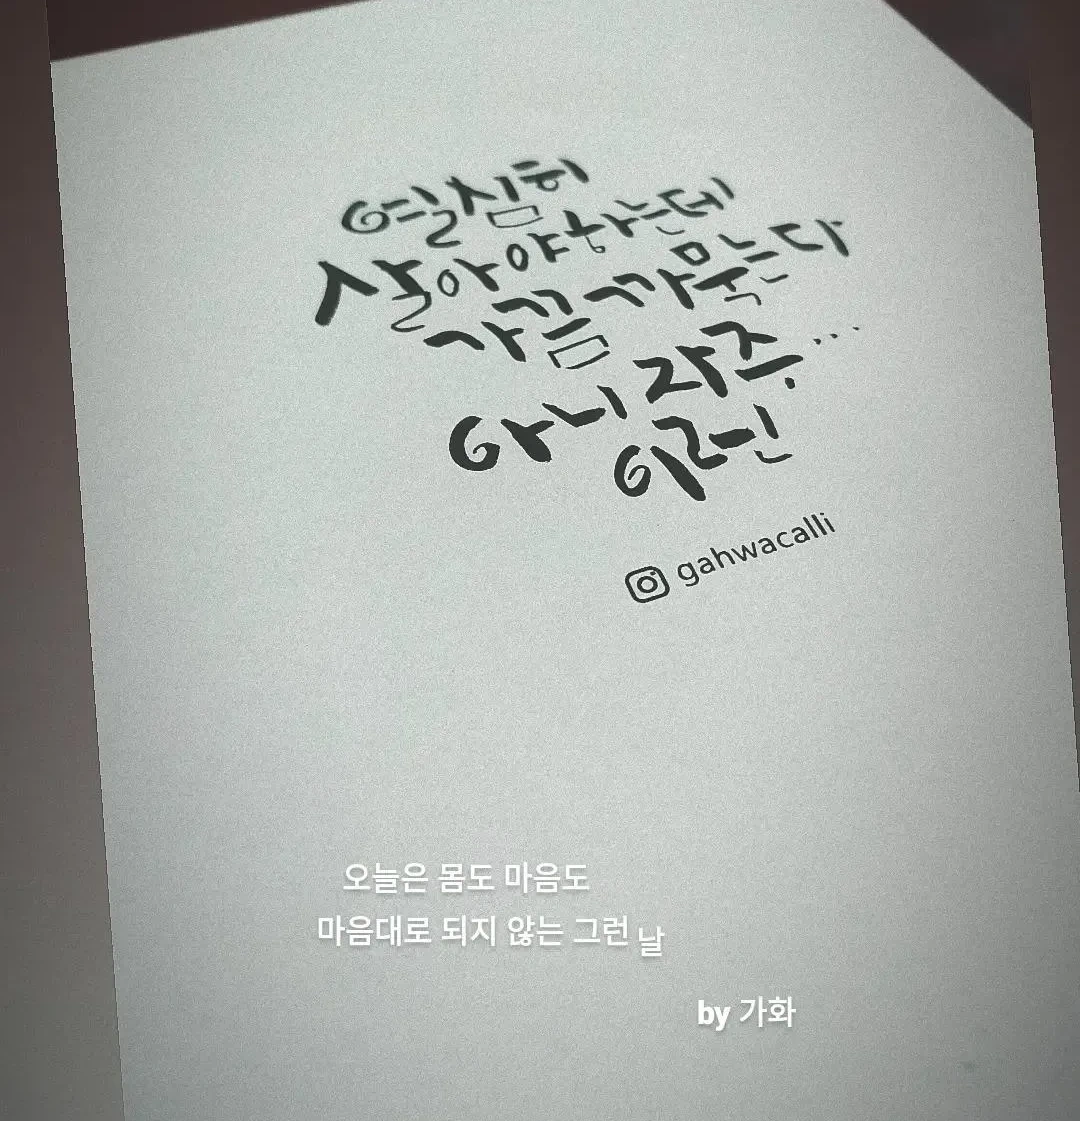 열심히
살아야하는데
가끔 까묵는다
아니 자주...
이런
gahwacalli
오늘은 몸도 마음도
마음대로 되지 않는 그런 날
by 가화